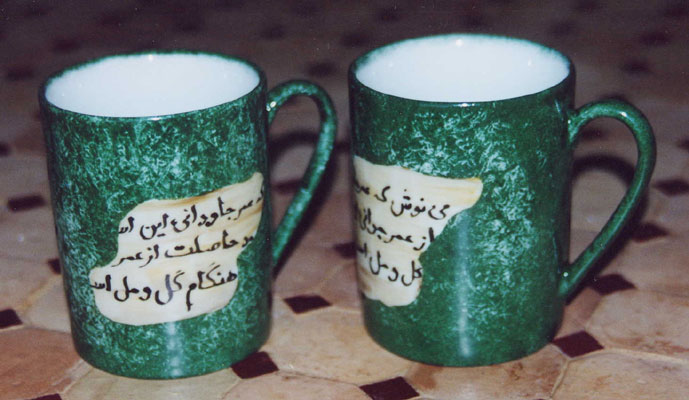 که عمر جاودانی این
حاصلت از عمر
هنگام گل و مل
می نوش که عمر
از عمر جوانی
گل و مل